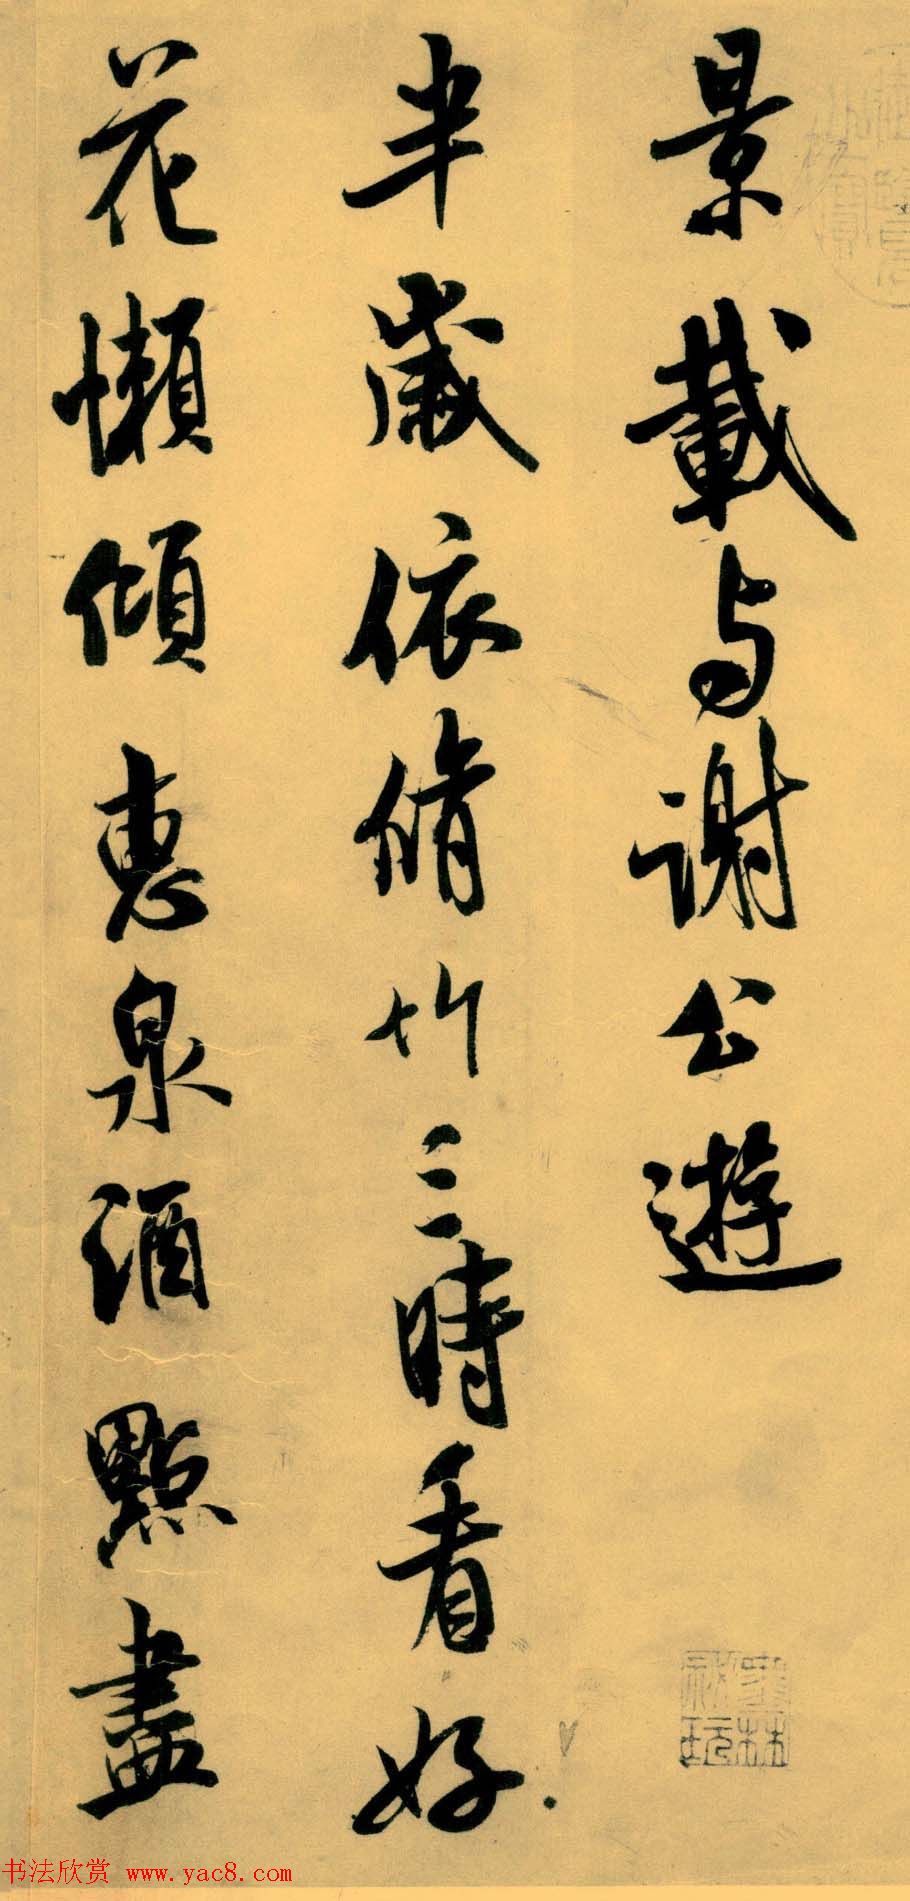 景載与謝公遊
半歲依脩竹三時看好
花懶傾惠泉酒點盡
書法欣赏 www.yac8.com